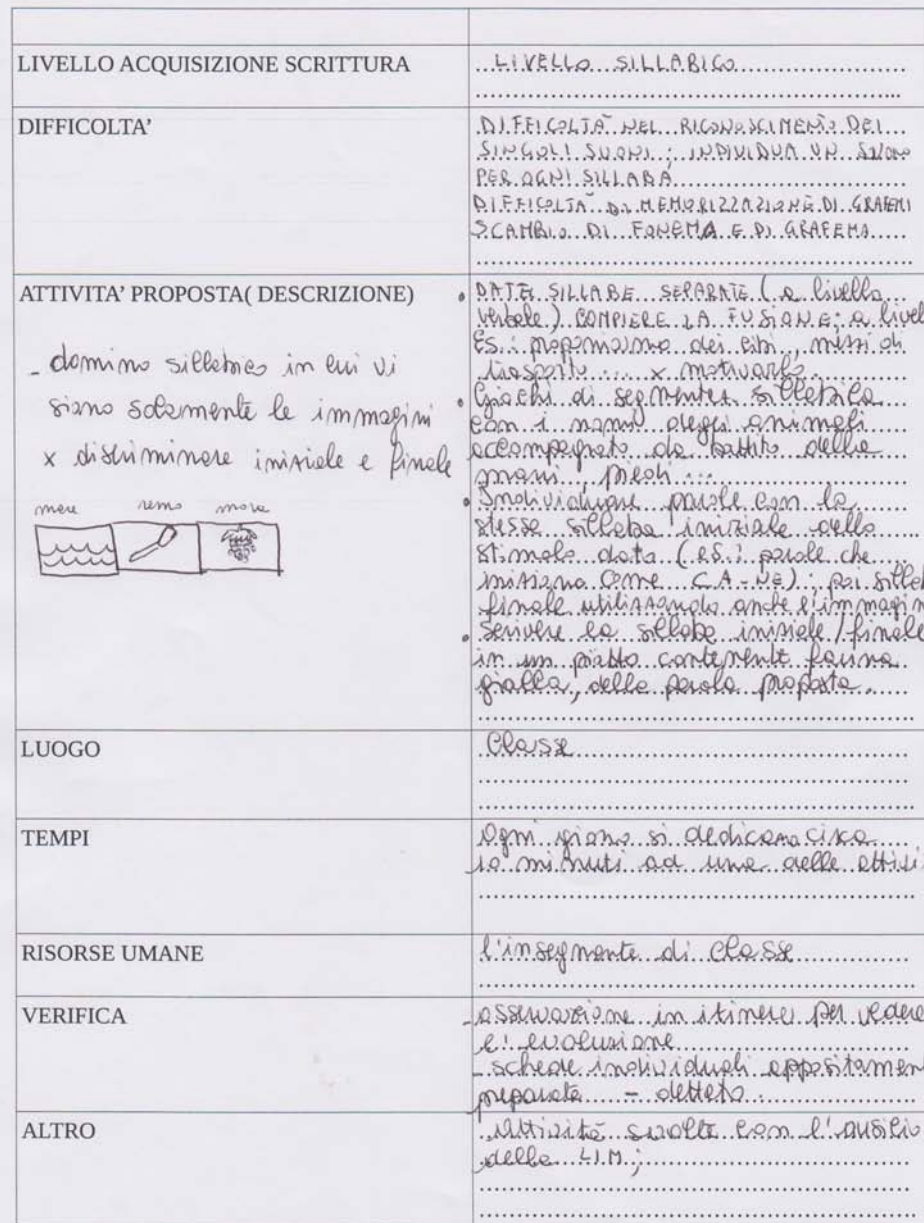 LIVELLO ACQUISIZIONE SCRITTURA
LIVELLO SILLABICO
DIFFICOLTA'
DIFFICOLTÀ NEL RICONOSCIMENTO DEI
SINGOLI SUONI; INDIVIDUA UN SUONO
PER OGNI SILLABA
DIFFICOLTÀ DI MEMORIZZAZIONE DI GRAFEMI
SCAMBIO DI FONEMA E DI GRAFEMA
ATTIVITA' PROPOSTA( DESCRIZIONE)
- domino sillabico in cui vi
siano solamente le immagini
x discriminare iniziale e finale
mare remo mora
• DATE SILLABE SEPARATE (a livello
verbale) COMPIERE LA FUSIONE; a livel
Es.: proponiamo dei cibi, mezzi di
trasporto ... x motivarlo.
• Giochi di segmentaz. sillabica
con i nomi degli animali
accompagnato da battito delle
mani, piedi ...
• Individuare parole con la
stessa sillaba iniziale dello
stimolo dato (es.: parole che
iniziano come CA-NE); poi sillab
finale utilizzando anche l'immagin
• Scrivere la sillaba iniziale/finale
in un piatto contenente farina
gialla, della parola proposta.
LUOGO
Classe
TEMPI
Ogni giorno si dedicano circa
10 minuti ad una delle attivi
RISORSE UMANE
l'insegnante di classe
VERIFICA
- osservazione in itinere per vedere
l'evoluzione
- schede individuali appositamen
preparate - dettato.
ALTRO
Attività svolte con l'ausilio
della LIM;